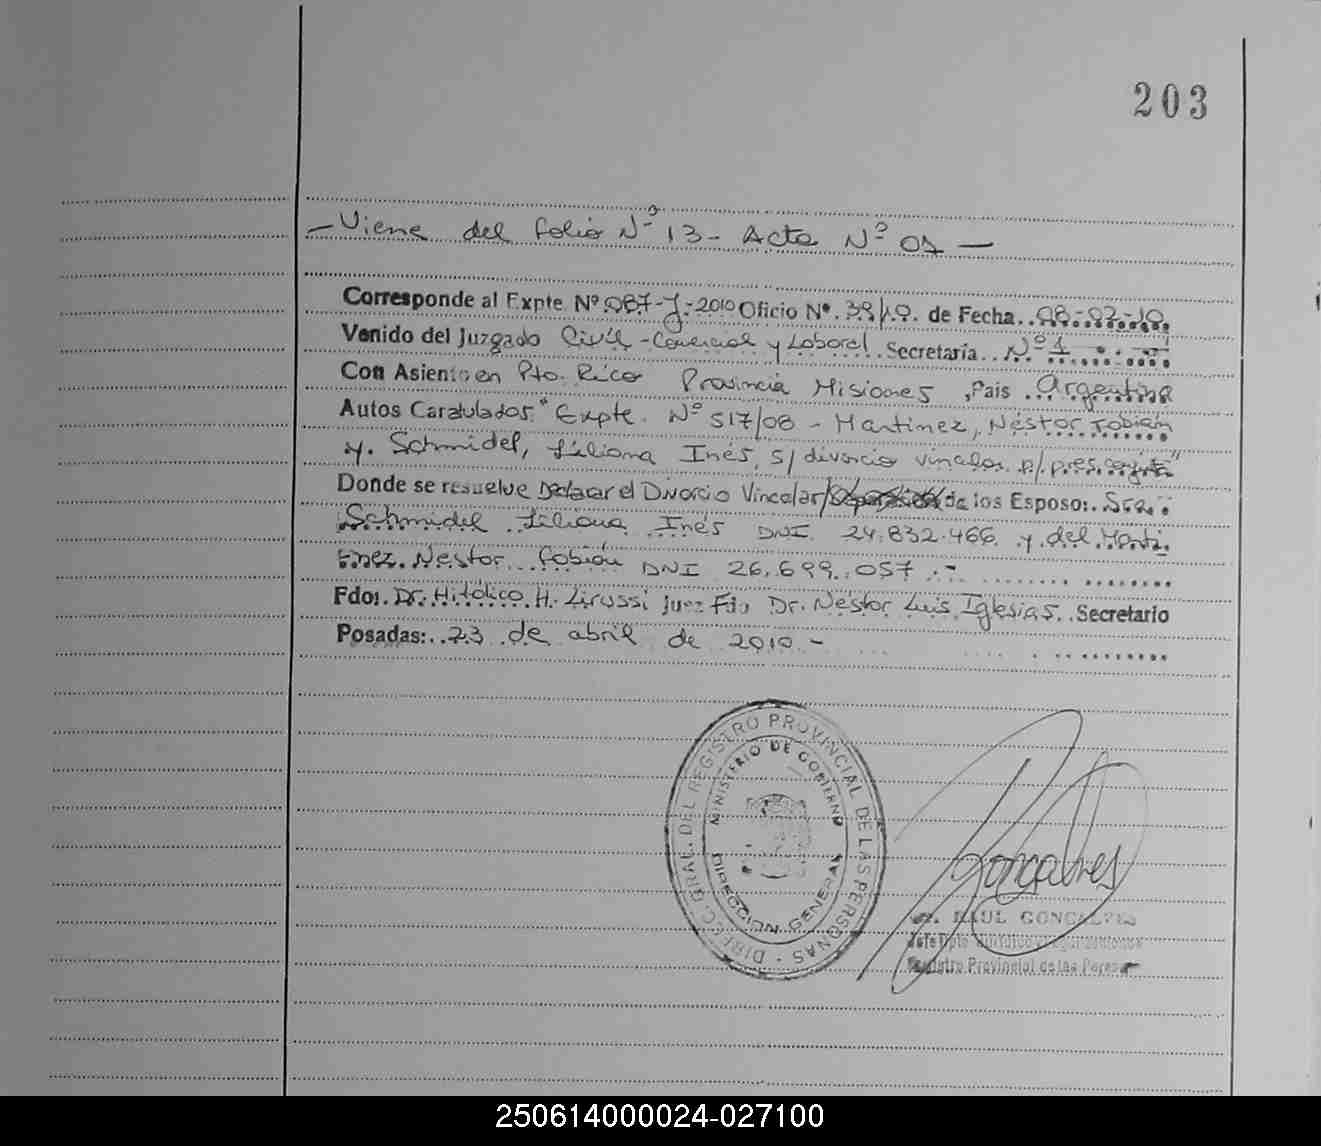 203
- Viene del folio Nº 13 - Acta Nº 01 -
Corresponde al Expte Nº 087-J-2010 Oficio Nº. 39/10. de Fecha..08-02-10
Venido del Juzgado Civil - Comercial y Laboral. Secretaría.. Nº 1
Con Asiento en Pto. Rico Provincia Misiones , País .. Argentina
Autos Caratulados. " Expte. Nº 517/08 - Martinez, Néstor Fabián
y. Schmidel, Liliana Inés, s/ divorcio vincular p/. pres. conjunta"
Donde se resuelve Declarar el Divorcio Vincular/ de los Esposo:. Sra.
Schmidel Liliana Inés DNI 24.832.466 y del Marti
nez. Nestor Fabián DNI 26.699.057 . -
Fdo: Dr. H. Lirussi Juez Fdo Dr. Néstor Luis Iglesias. Secretario
Posadas:..23 de abril de 2010 -
DIRECC. GRAL. DEL REGISTRO PROVINCIAL DE LAS PERSONAS
MINISTERIO DE GOBIERNO
DIRECCION GENERAL
Goncalves
RAUL GONCALVES
Jefe Dpto
Registro Provincial de las Personas
250614000024-027100